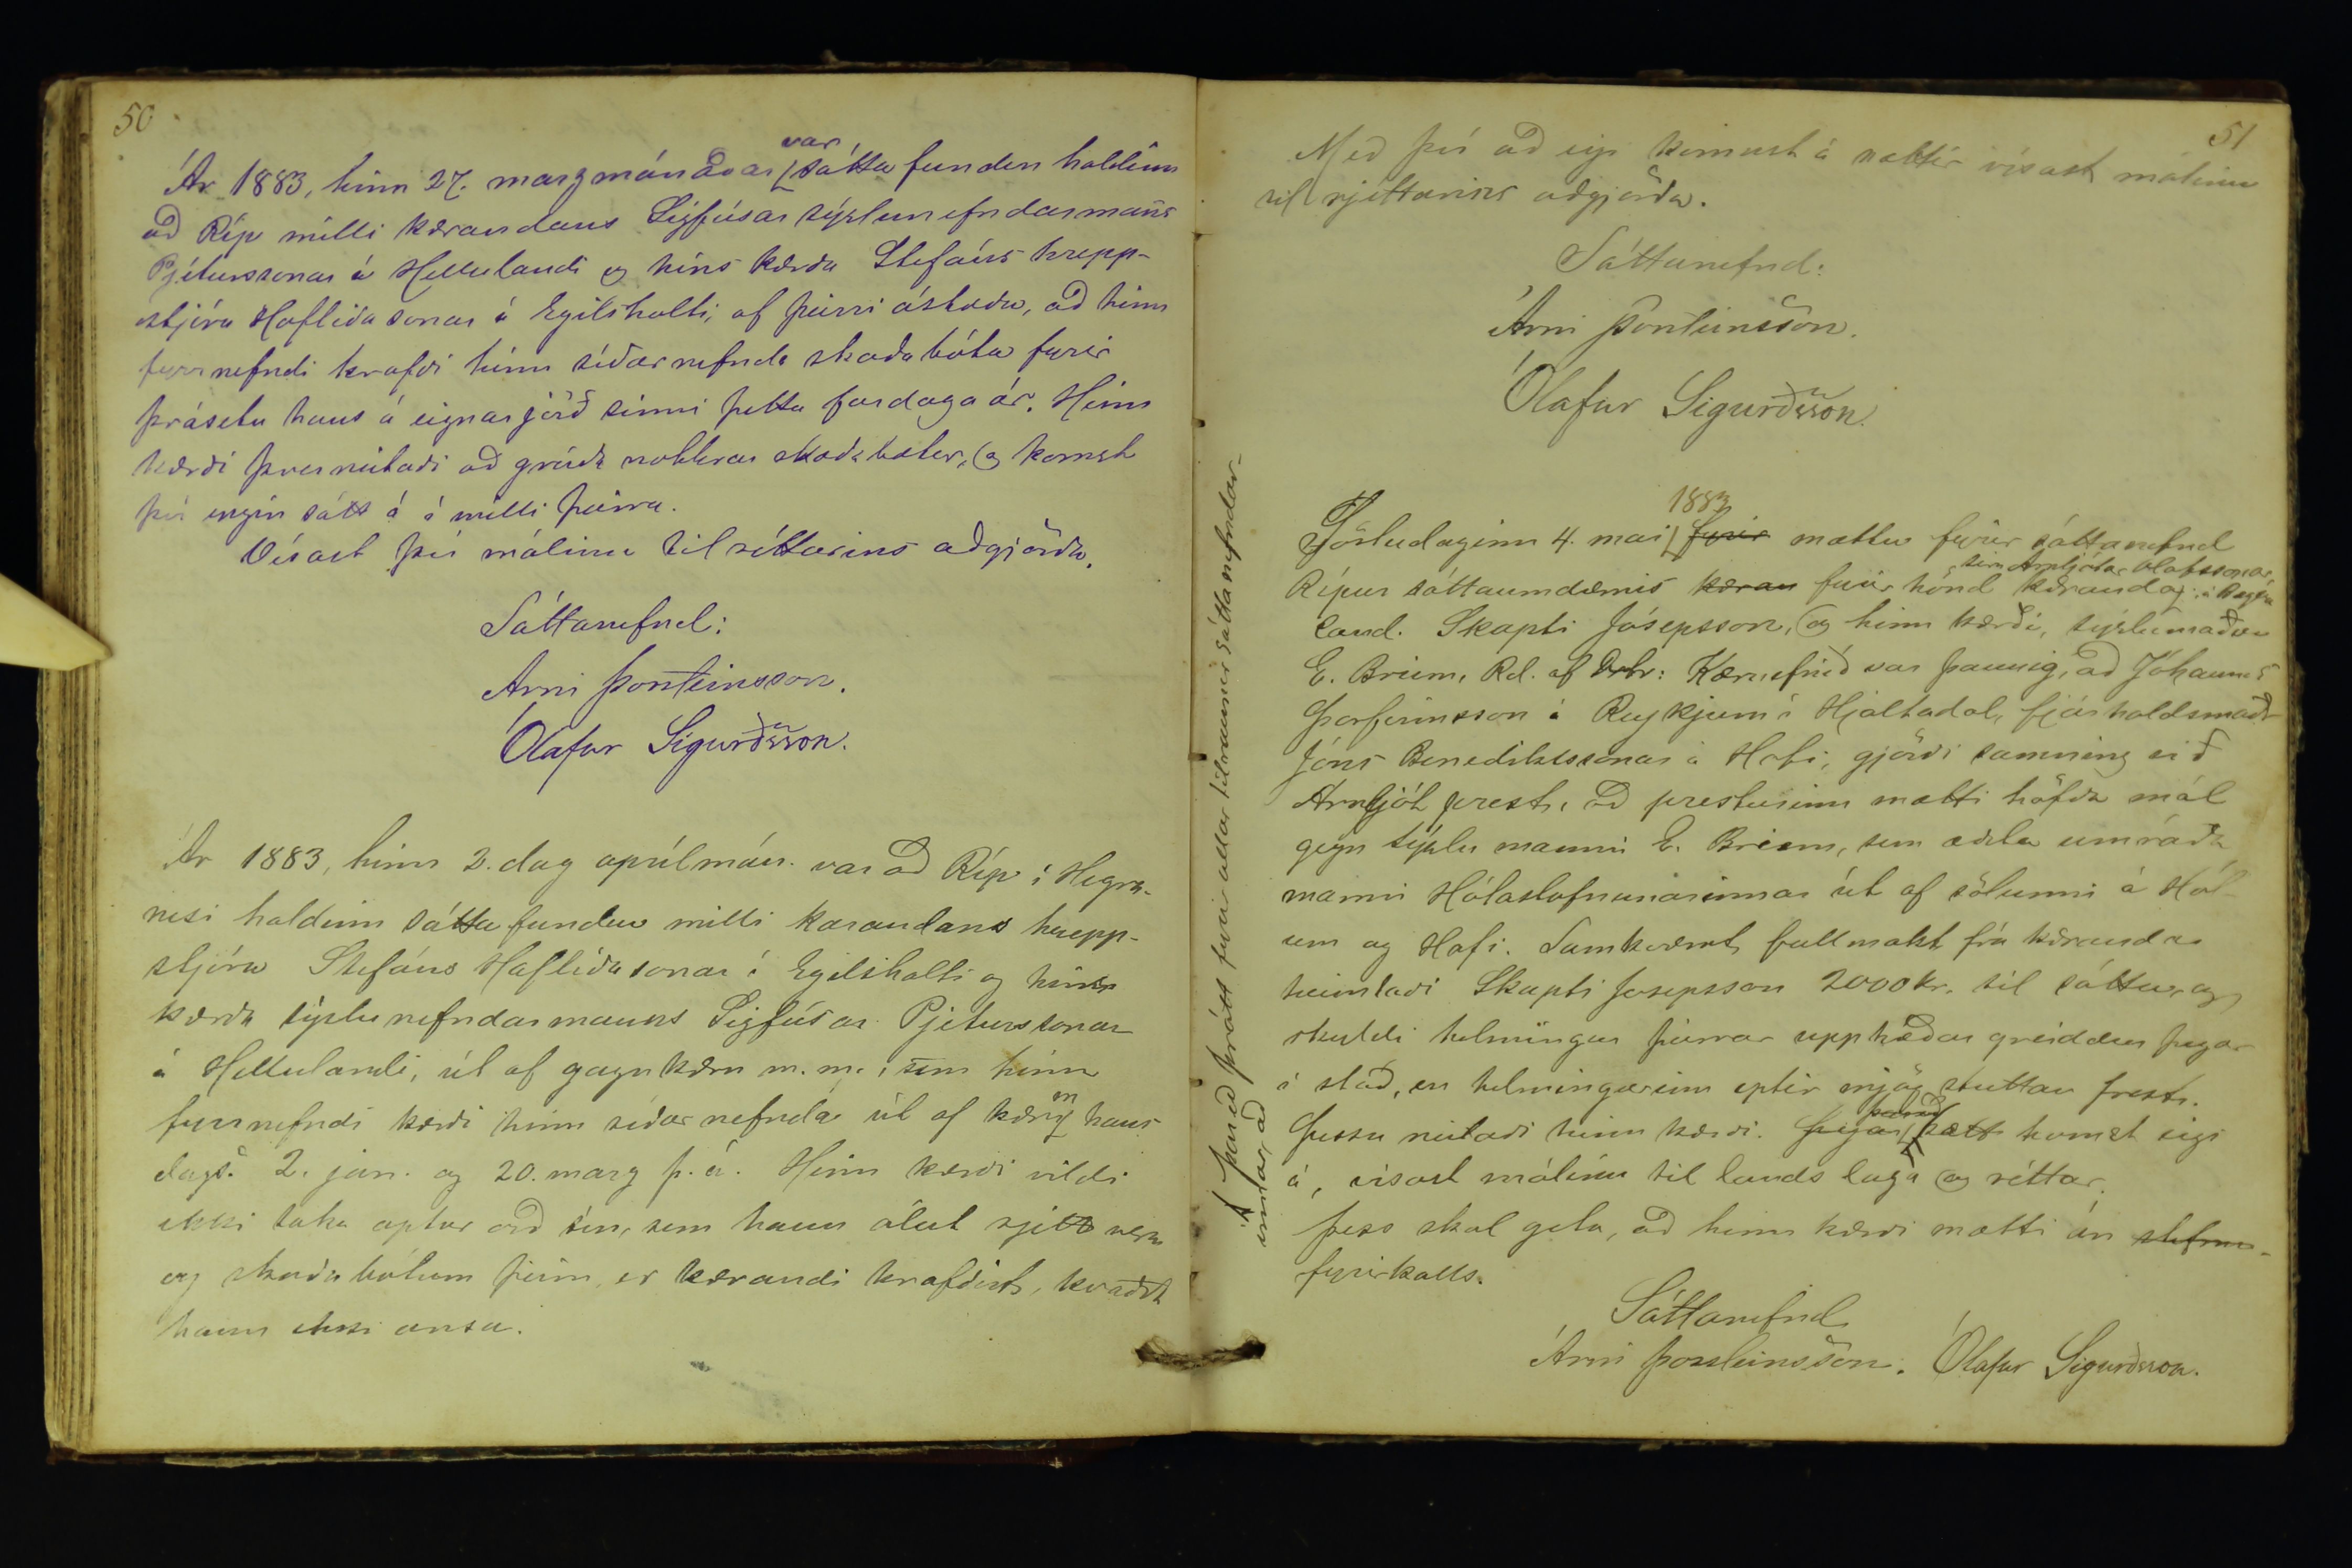 50
Ár 1883, hinn 27. marzmánaðar var sáttafundur haldinn
að Ríp milli kærandans Sigfúsar sýslunefndarmanns
Pjeturssonar á Hellulandi og hins kærða Stefáns hrepp-
stjóra Hafliðasonar á Egilsholti, af þeirri ástæðu, að hinn
fyrrnefndi krafði hinn síðarnefnda skaðabóta fyrir
þrásetu hans á eignarjörð sinni þetta fardagaár. Hinn
kærði þverneitaði að greiða nokkrar skaðabætur, og komst
því engin sátt á á milli þeirra.
Vísast því málinu til réttarins aðgjörða.
Sáttanefnd:
Árni Þorsteinsson.
Ólafur Sigurðsson.
Ár 1883, hinn 2. dag aprílmán. var að Ríp í Hegra-
nesi haldinn sáttafundur milli kærandans hrepp-
stjóra Stefáns Hafliðasonar á Egilsholti og hins
kærða sýslunefndarmanns Sigfúsar Pjeturssonar
á Hellulandi, út af gagnkæru m. m., sem hinn
fyrrnefndi kærði hinn síðarnefnda út af kærum hans
dags. 2. jan. og 20. marz þ. á. Hinn kærði vildi
ekki taka aptur orð sín, sem hann áleit rjett vera
og skaðabótum þeim er kærandi krafðist, kvaðst
hann ekki ansa.
51
Með því að eigi komust á sættir vísast málinu
til rjettarins aðgjörða.
Sáttanefnd:
Árni Þorsteinsson.
Ólafur Sigurðsson.
Föstudaginn 4. mai 1883 fyrir mættu fyrir sáttanefnd
Rípur sáttaumdæmis kæran fyrir hönd kæranda, síra Arnljótar Ólafssonar, á Bægisá
cand. Skapti Jósepsson, og hinn kærði, sýslumaður
E. Briem, Rd. af Dbr: Kæruefnið var þannig, að Jóhannes
Þorfinnsson á Reykjum í Hjaltadal, fjárhaldsmaðr
Jóns Benediktssonar á Hofi, gjörði samning við
Arnljót prest, að presturinn mætti höfða mál
gegn sýslumanni E. Briem, sem æðsta umráða
manni Hólastofnunarinnar út af sölunni á Hól-
um og Hofi. Samkvæmt fullmakt frá kæranda
heimtaði Skapti Josepsson 2000 kr. til sátta, og
skyldi helmingur þeirrar upphæðar greiddur þegar
í stað, en helmingurinn eptir mjög stuttan frest.
Þessu neitaði hinn kærði. Þegar þannig sætt komst eigi
á, vísast málinu til lands laga og réttar.
Þess skal geta, að hinn kærði mætti án stefnu-
fyrirkalls.
Sáttanefnd
Árni Þorsteinsson. Ólafur Sigurðsson.
Þareð þrátt fyrir allar tilraunir sáttanefndar-
innar, að